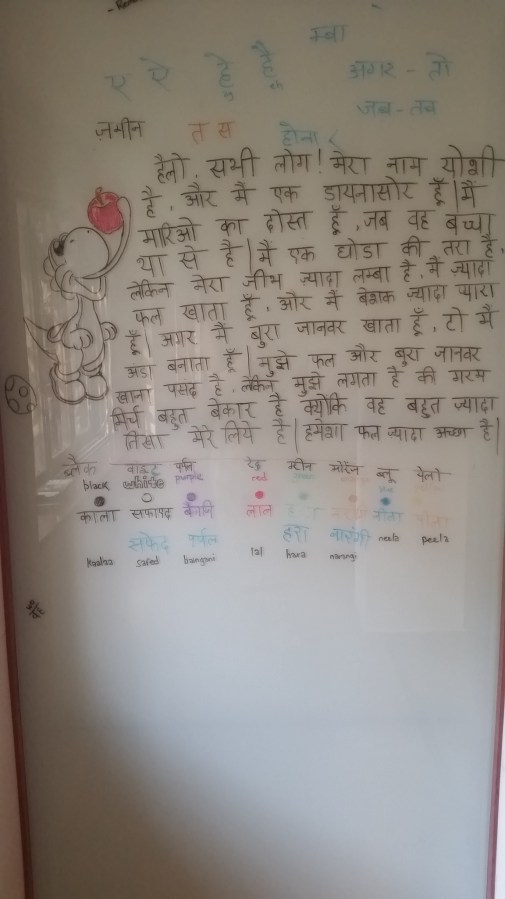 म्बा
ए ऐ हूँ हैं अगर - तो
जब - तब
ज़मीन त स होना
हैलो, सभी लोग! मेरा नाम योशी
है, और मैं एक डायनासोर हूँ | मैं
मारिओ का दोस्त हूँ, जब वह बच्चा
था से है | मैं एक घोडा की तरा है,
लेकिन मेरा जीभ ज़्यादा लम्बा है, मैं ज़्यादा
फल खाता हूँ, और मैं बेशक ज़्यादा प्यारा
हूँ | अगर मैं बुरा जानवर खाता हूँ, टो मैं
अडा बनाता हूँ | मुझे फल और बुरा जानवर
खाना पसद है, लेकिन मुझे लगता है की गरम
मिर्च बहुत बेकार है क्योकि वह बहुत ज़्यादा
तिखा मेरे लिये है | हमेशा फल ज्यादा अच्छा है |
ब्लैक वाइट पर्पल रेड ग्रीन ओरेंज ब्लू येलो
black purple red
काला सफापद बैंगनि लाल हरा नीला पीला
सफेद पर्पल हरा नारंगी
Kaalaa safed bangani lal hara narangi neela peela